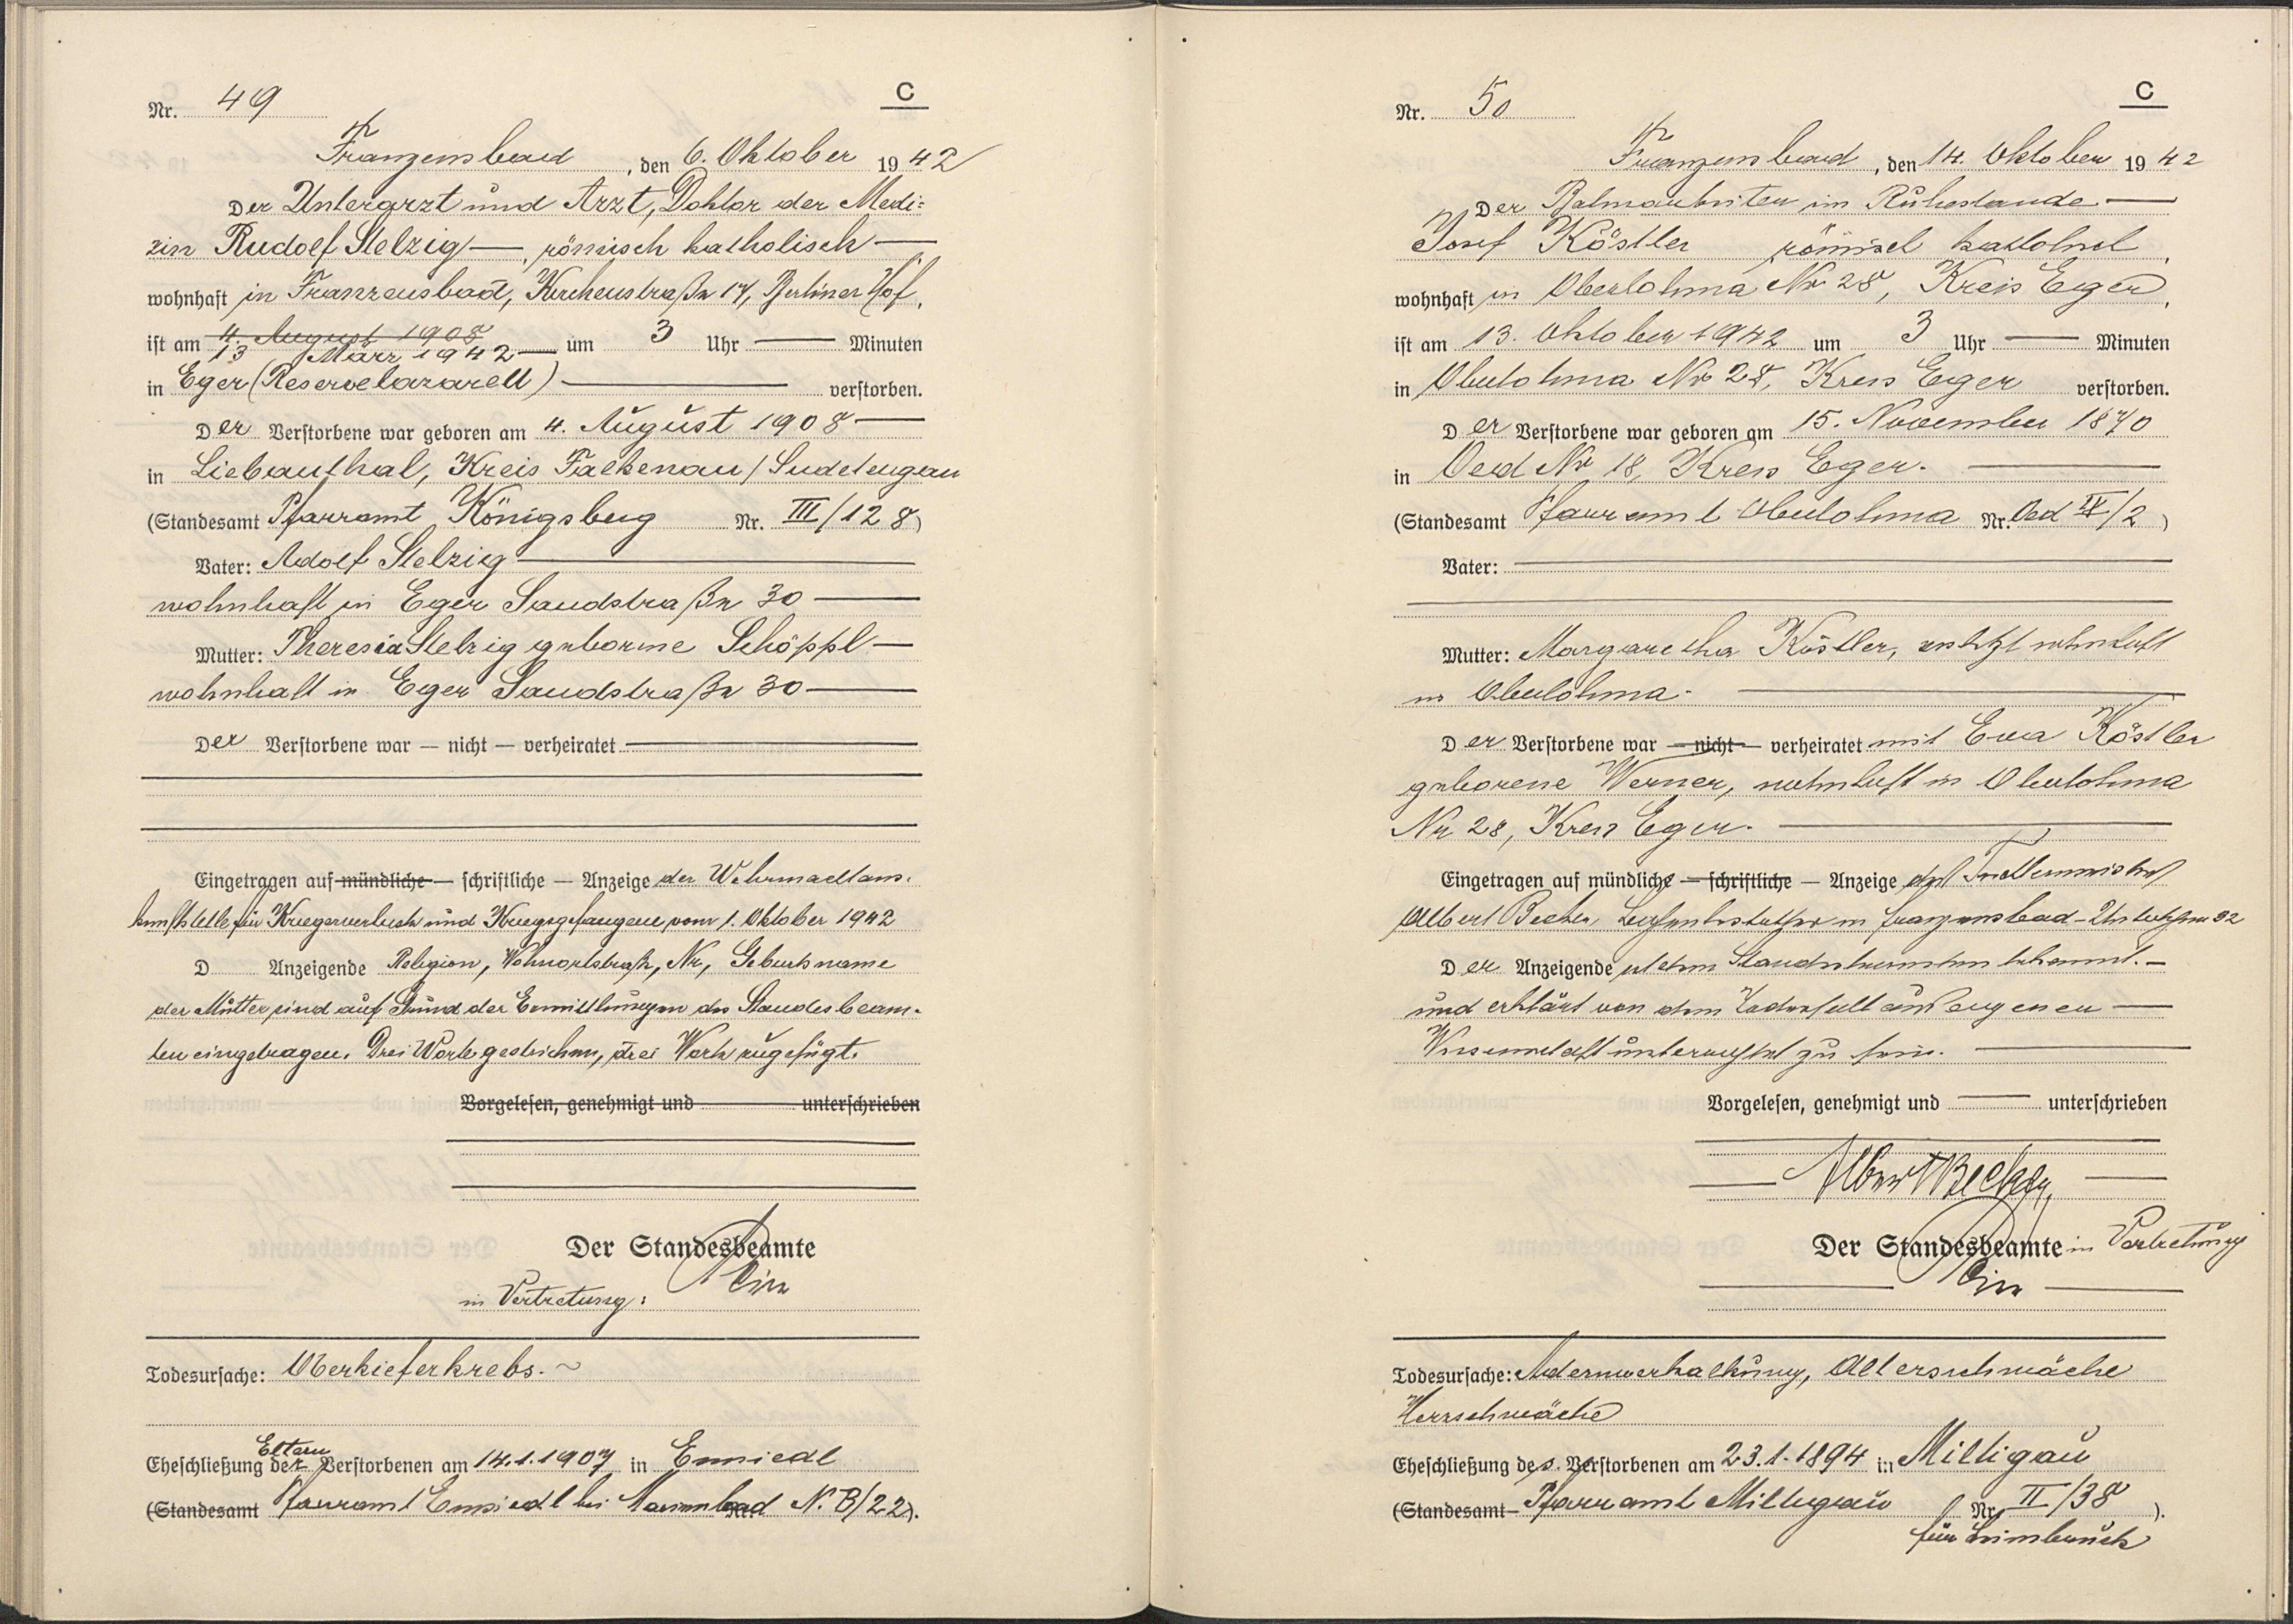 Nr. 49
C
Franzensbad, den 6. Oktober 1942
Der Unterarzt und Arzt, Doktor der Medi=
zin Rudolf Stelzig —, römisch katholisch —
wohnhaft in Franzensbad, Kirchenstraße 17, Berliner Hof,
4. August 1908
ist am 13 März 1942 — um 3 Uhr — Minuten
in Eger (Reservelazarett) — verstorben.
Der Verstorbene war geboren am 4. August 1908 —
in Liebauthal, Kreis Falkenau / Sudetengau
(Standesamt Pfarramt Königsberg Nr. III/128)
Vater: Adolf Stelzig —
wohnhaft in Eger Sandstraße 30 —
Mutter: Theresia Stelzig geborene Schöppl —
wohnhaft in Eger Sandstraße 30 —
Der Verstorbene war — nicht — verheiratet —
Eingetragen auf mündliche — schriftliche — Anzeige der Wehrmachtaus-
kunftstelle für Kriegerverluste und Kriegsgefangene vom 1. Oktober 1942
D Anzeigende Religion, Wohnortstraße, Nr, Geburtsname
der Mutter sind auf Grund der Ermittlungen des Standesbeam-
ten eingetragen. Drei Worte gestrichen, drei Worte zugefügt.
Vorgelesen, genehmigt und unterschrieben
Der Standesbeamte
in Vertretung:
Todesursache: Oberkieferkrebs.
Eltern
Eheschließung der Verstorbenen am 14.1.1907 in Einsiedl
(Standesamt Pfarramt Einsiedl bei Marienbad N. B/22).
Nr. 50
C
Franzensbad, den 14. Oktober 1942
Der Bahnarbeiter im Ruhestande —
Josef Köstler römisch katholisch,
wohnhaft in Oberlohma Nr 28, Kreis Eger,
ist am 13. Oktober 1942 um 3 Uhr — Minuten
in Oberlohma Nr 28, Kreis Eger verstorben.
Der Verstorbene war geboren am 15. November 1870
in Oed Nr 18, Kreis Eger. —
(Standesamt Pfarramt Oberlohma Nr. Oed II/2)
Vater: —
Mutter: Margaretha Köstler, zuletzt wohnhaft
in Oberlohma. —
Der Verstorbene war — nicht — verheiratet mit Eva Köstler
geborene Werner, wohnhaft in Oberlohma
Nr 28, Kreis Eger. —
Eingetragen auf mündliche — schriftliche — Anzeige des
Albert Becher, Leichenbestatter in Franzensbad - 32
Der Anzeigende ist dem Standesbeamten bekannt. —
und erklärt von dem Todesfall aus eigenen —
Wissenschaft unterrichtet zu sein. —
Vorgelesen, genehmigt und — unterschrieben
Albert Becher
Der Standesbeamte in Vertretung
Todesursache: Adernverkalkung, Altersschwäche
Herzschwäche
Eheschließung des Verstorbenen am 23.1.1894 in Miltigau
(Standesamt Pfarramt Miltigau Nr. II/38).
für Leimbruck